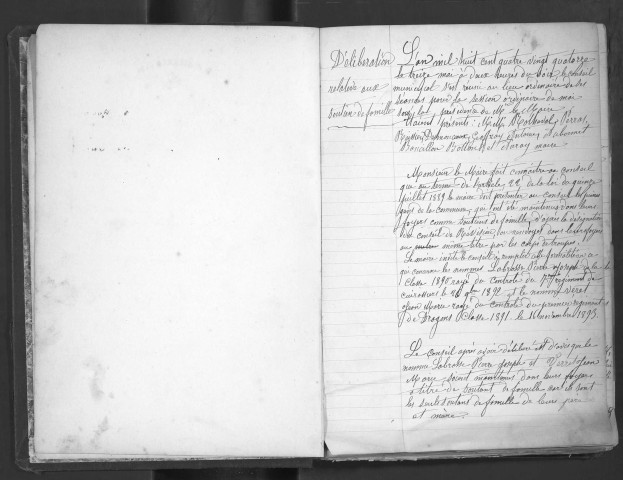 Délibération
relative aux
soutien de famille
L'an mil huit cent quatre vingt quatorze
le treize mai à deux heures du soir, le conseil
municipal s'est réuni au lieu ordinaire de ses
séances pour la session ordinaire de mai
sous la présidence de Mr le Maire
Etaient présents : M.M.
Geoffray
maire
Monsieur le Maire fait connaître au conseil
que au terme de l'article 22 de la loi du quinze
juillet 1889 le maire doit présenter au conseil les jeunes
gens de la commune, qui ont été maintenus dans leurs
foyers comme soutiens de famille, d'après la désignation
du conseil de Révision, ou renvoyés dans leurs foyers
au même titre par les corps de troupes.
Le maire invite le conseil à remplir cette formalité en
qui concerne les nommés Labrosse Pierre Joseph de la
classe 1890 rayé du contrôle du 7e régiment de
cuirassiers le 1892 et le nommé
Jean Marie rayé du contrôle du premier régiment
de Dragons Classe 1891 le 16 novembre 1893.
Le Conseil après avoir délibéré est d'avis que le
nommé Labrosse Pierre Joseph et Jean
Marie soient maintenus dans leurs foyers
à titre de soutient de famille car ils sont
les seuls soutiens de famille de leurs père
et mère.